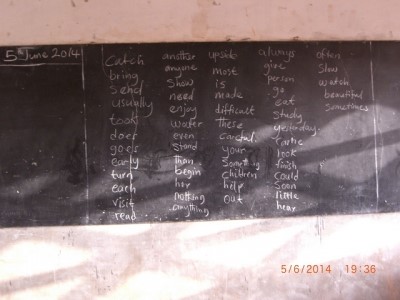 5th June 2014
catch another upside always often
bring anyone most give slow
send show is person watch
usually need made go beautiful
took enjoy difficult eat sometimes
does water these study
goes even careful yesterday
early stand your
turn than something look
each begin children finish
visit her help could
read nothing out soon
anything little
hear
5/6/2014 19:36